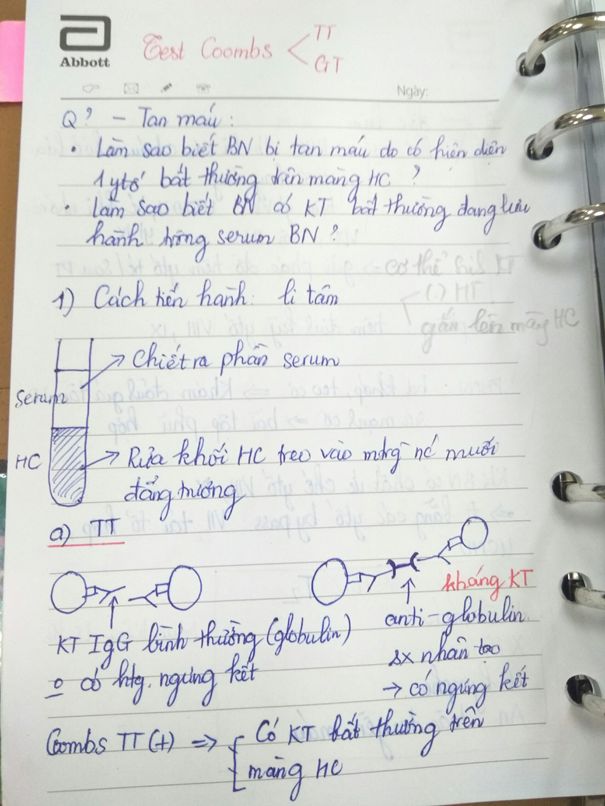 Abbott
Test Coombs < TT
GT
Ngày:
Q? - Tan máu:
• Làm sao biết BN bị tan máu do có hiện diện
1 ytố bất thường trên màng HC?
• Làm sao biết BN có KT bất thường đang lưu
hành trong serum BN?
1) Cách tiến hành: li tâm
gắn lên màng HC
→ Chiết ra phần serum
Serum
HC
→ Rửa khối HC treo vào mtrg nc muối
đẳng trương
a) TT
kháng KT
KT IgG bình thường (globulin)
o có htg. ngưng kết
anti-globulin
sx nhân tạo
→ có ngưng kết
Coombs TT (+) => Có KT bất thường trên
màng HC